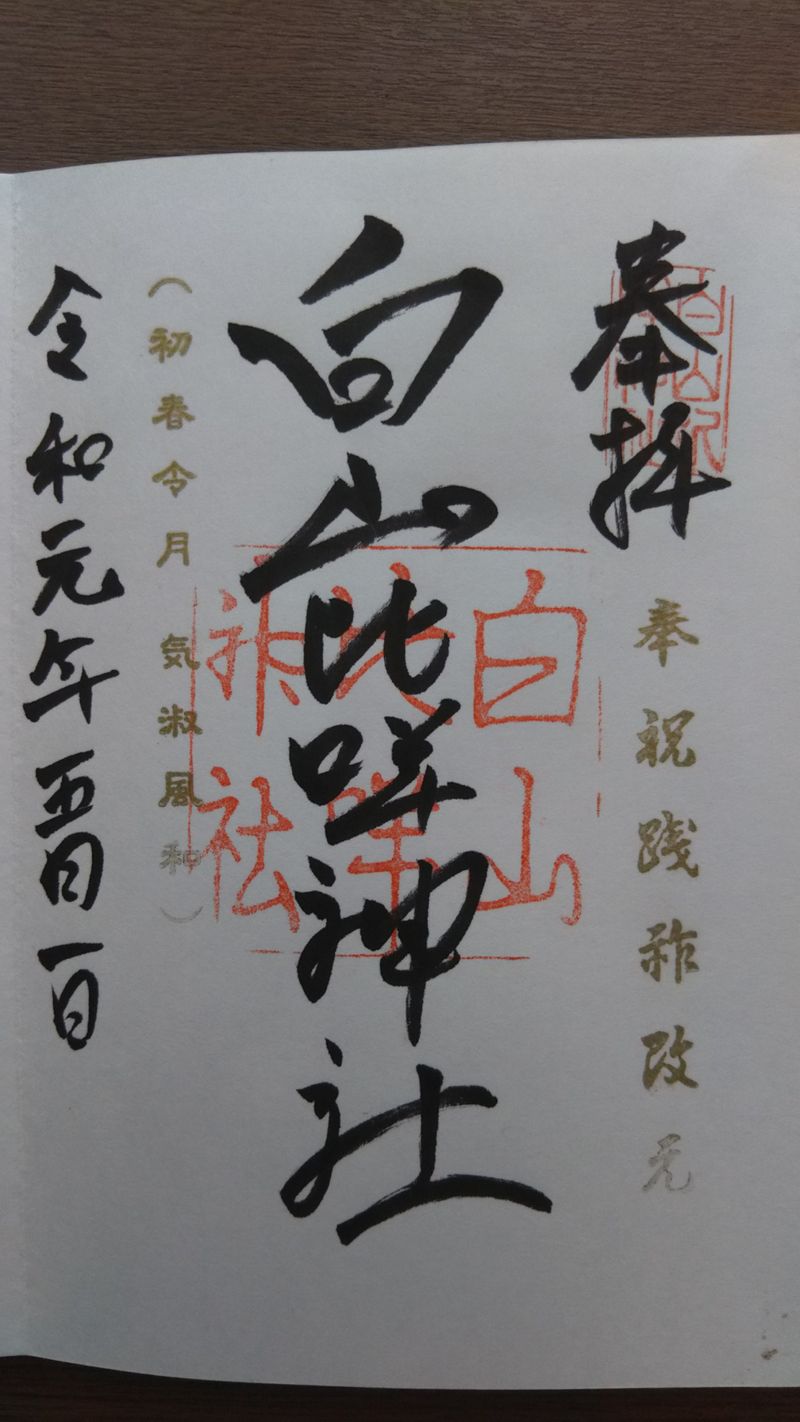 奉拝
奉祝践祚改元
白山比咩神社
白山比咩神社
(初春令月 気淑風和)
令和元年五月一日